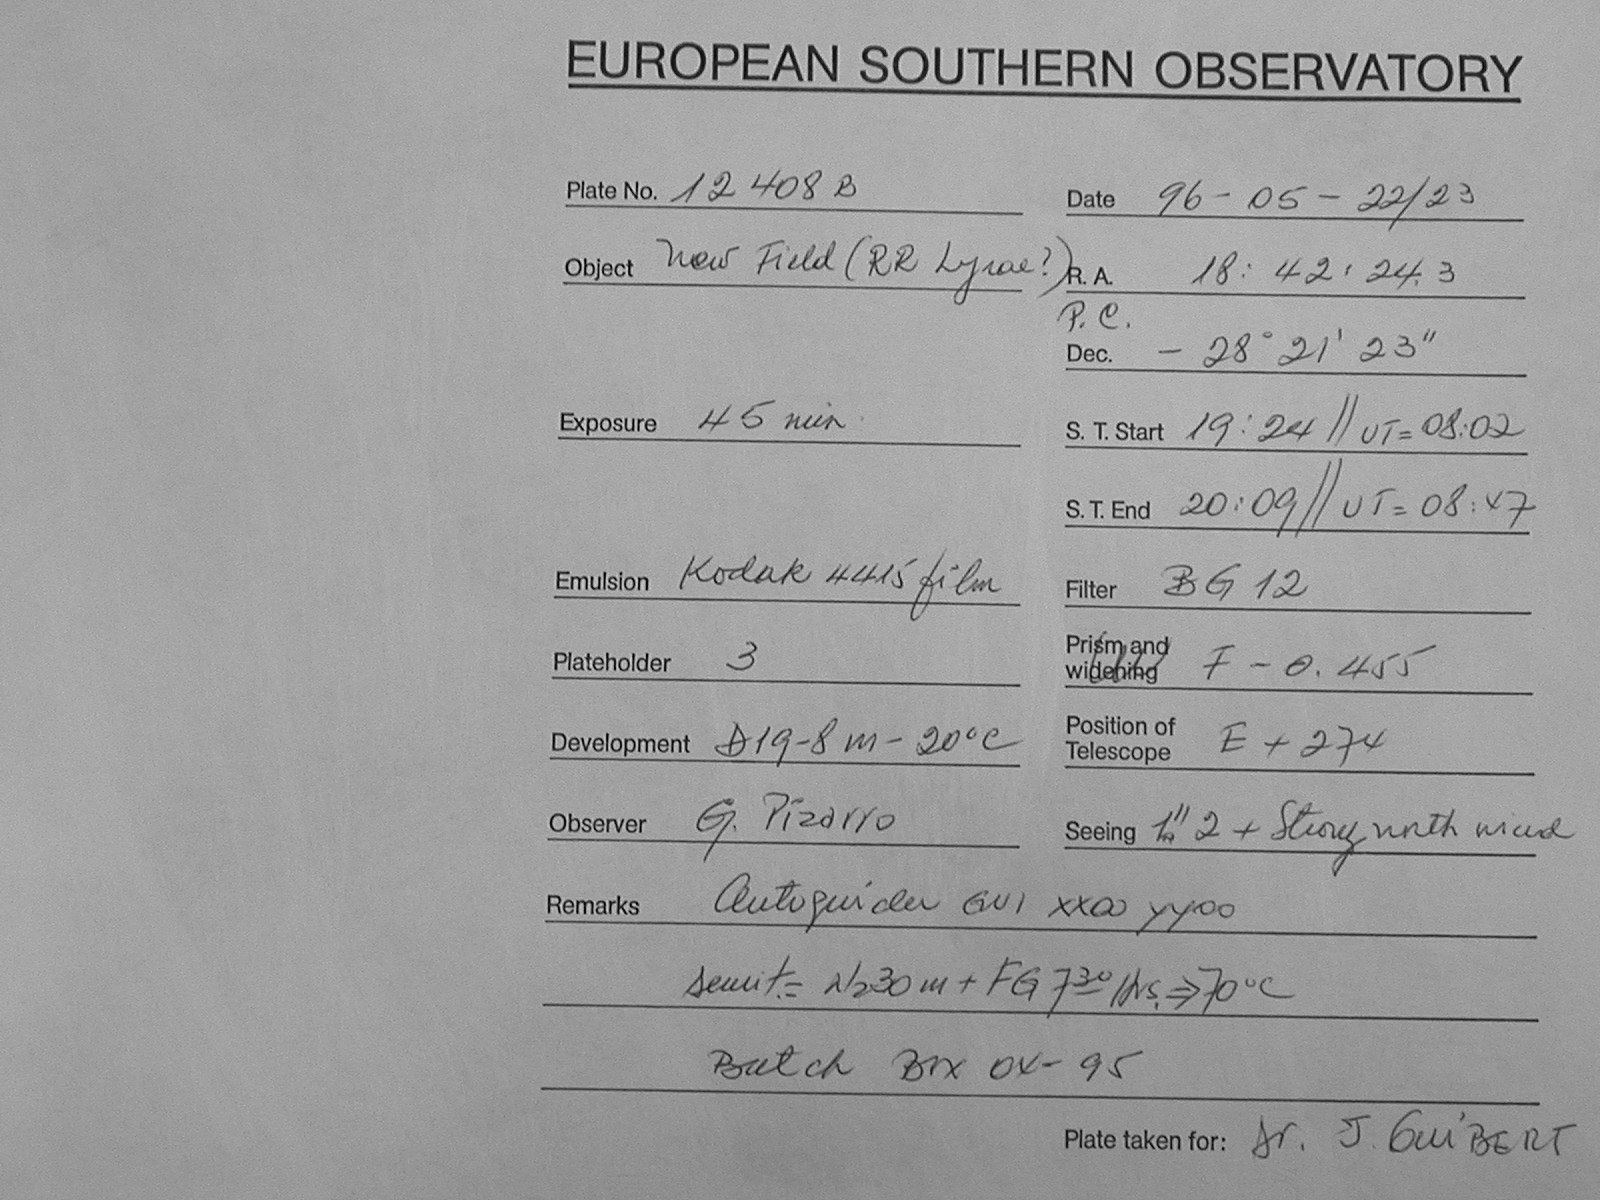 EUROPEAN SOUTHERN OBSERVATORY
Plate No. 12408 B Date 96-05-22/23
Object New Field (RR Lyrae?) R. A. 18: 42: 24.3
P. C.
Dec. - 28° 21' 23"
Exposure 45 min. S. T. Start 19:24 // UT= 08:02
S. T. End 20:09 // UT= 08:47
Emulsion Kodak 4415 film Filter BG 12
Plateholder 3 Prism and widening F - 0.455
Development D19-8m-20°C Position of Telescope E + 274
Observer G. Pizarro Seeing 1" 2 + Strong north wind
Remarks Autoguider GUI XX00 YY00
N230m + FG 730 Hrs. ⇒ 70°C
Batch Box 04-95
Plate taken for: Dr. J. GUIBERT